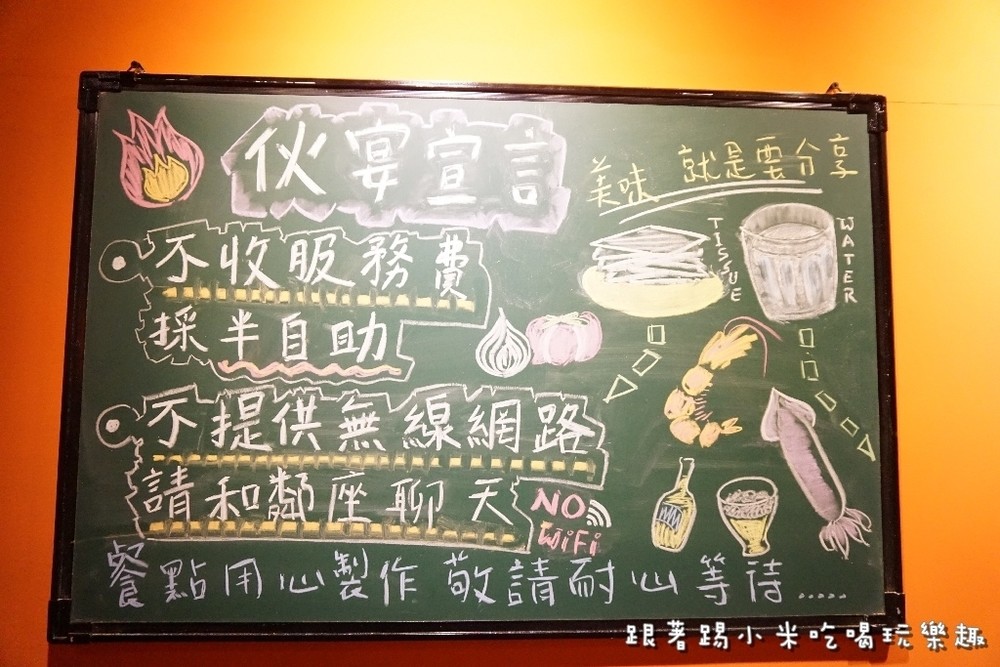 伙宴宣言
美味 就是要分享
不收服務費
採半自助
TISSUE
WATER
不提供無線網路
請和鄰座聊天
NO
WiFi
餐點用心製作 敬請耐心等待.....
跟著踢小米吃喝玩樂趣